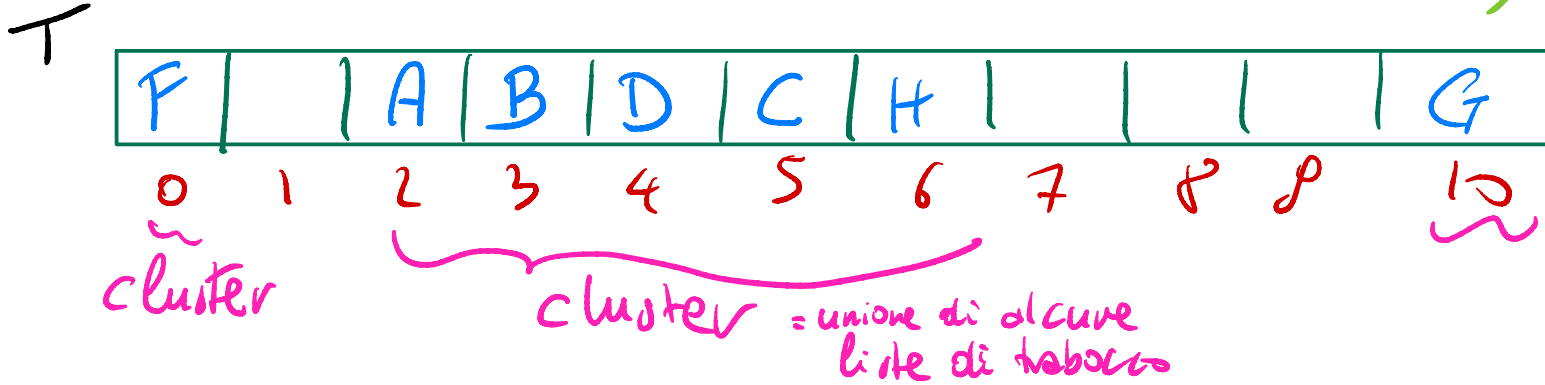 T
F | | A | B | D | C | H | | | | G
0 1 2 3 4 5 6 7 8 9 10
cluster
cluster = unione di alcune
liste di trabocco